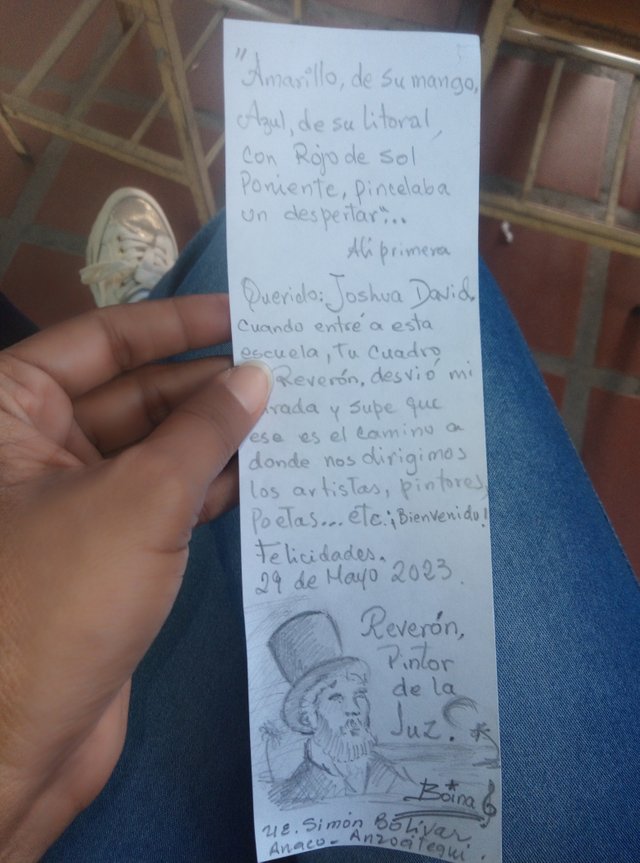 "Amarillo, de su mango,
Azul, de su litoral,
con Rojo de sol
Poniente, pincelaba
un despertar"...
Ali primera
Querido: Joshua David
cuando entré a esta
escuela, Tu Cuadro
Reverón, desvió mi
rada y supe que
ese es el camino a
donde nos dirigimos
los artistas, pintores,
Poetas... etc. ¡Bienvenido!
Felicidades.
29 de Mayo 2023.
Reverón,
Pintor
de la
Luz.
Boina
UE. Simón Bolívar
Anaco - Anzoátegui